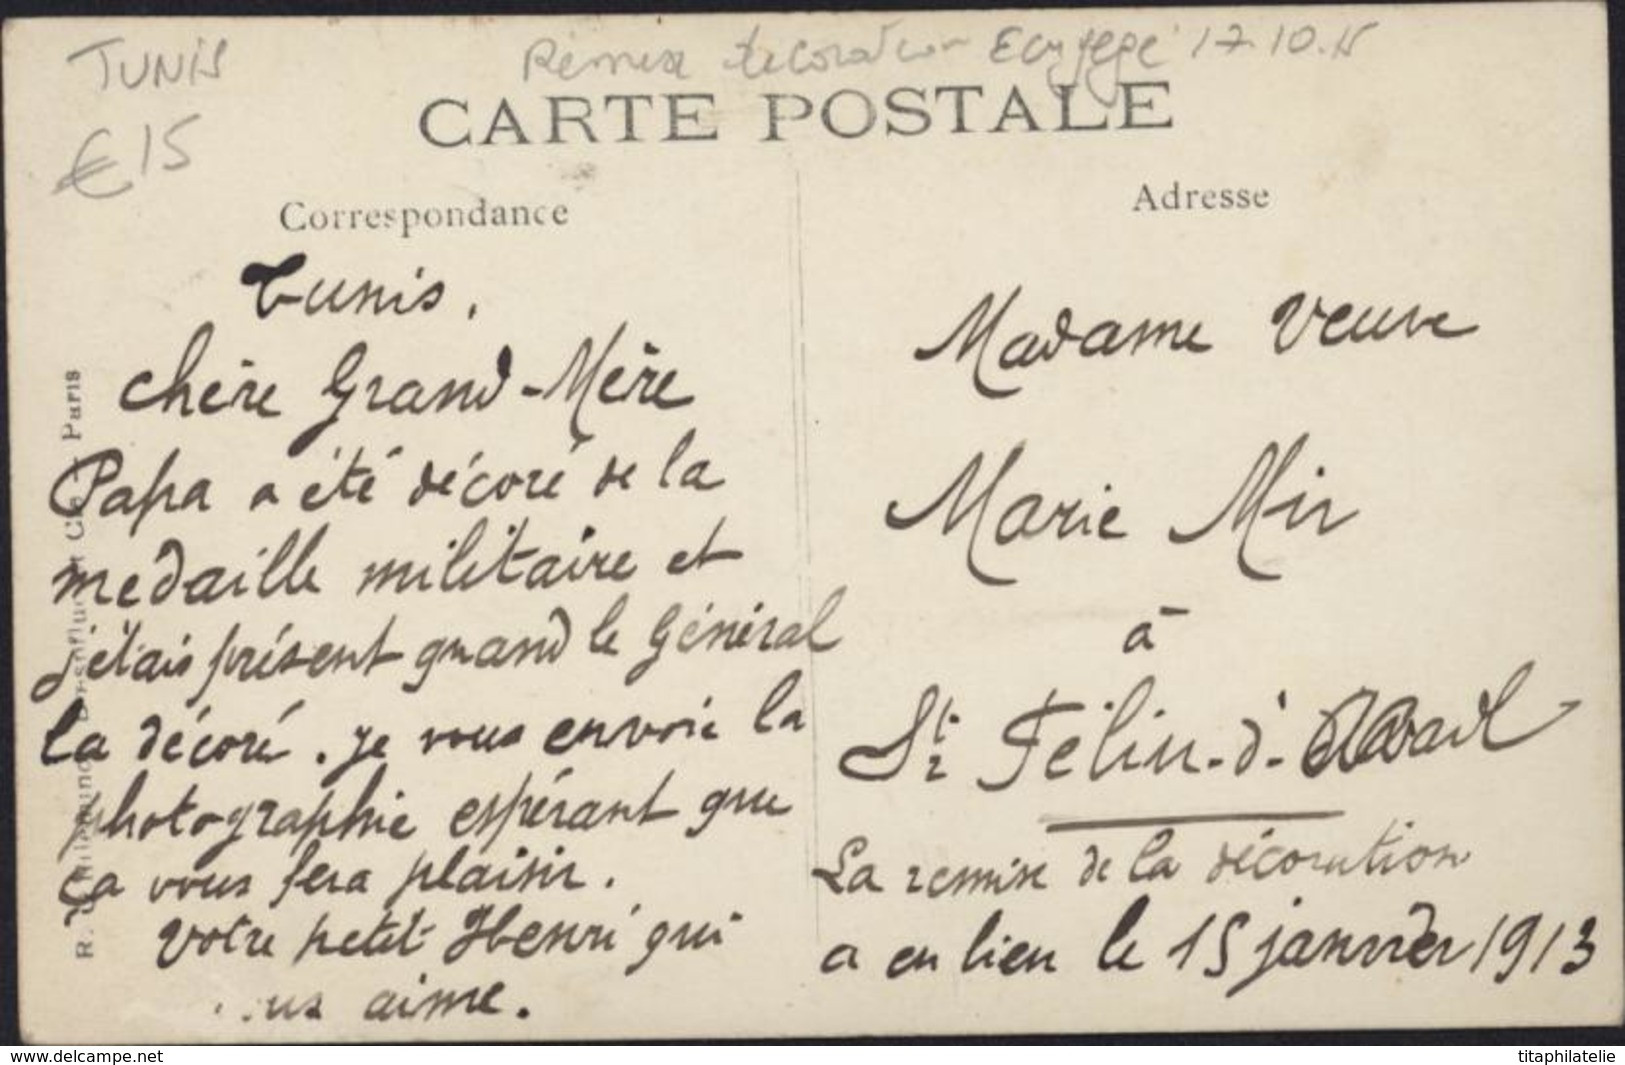 TUNIS
Remise decoration 17.10.15
€15
CARTE POSTALE
Correspondance
Adresse
Tunis.
Chère Grand-Mère
Papa a été décoré de la
medaille militaire et
j'étais présent quand le Général
la décoré. je vous envoie la
photographie espérant que
ça vous fera plaisir.
votre petit Henri qui
aime.
Madame Veuve
Marie Mir
à
St Félin-d'-Avail
La remise de la décoration
a eu lieu le 15 janvier 1913
Paris
www.delcampe.net
titaphilatelie